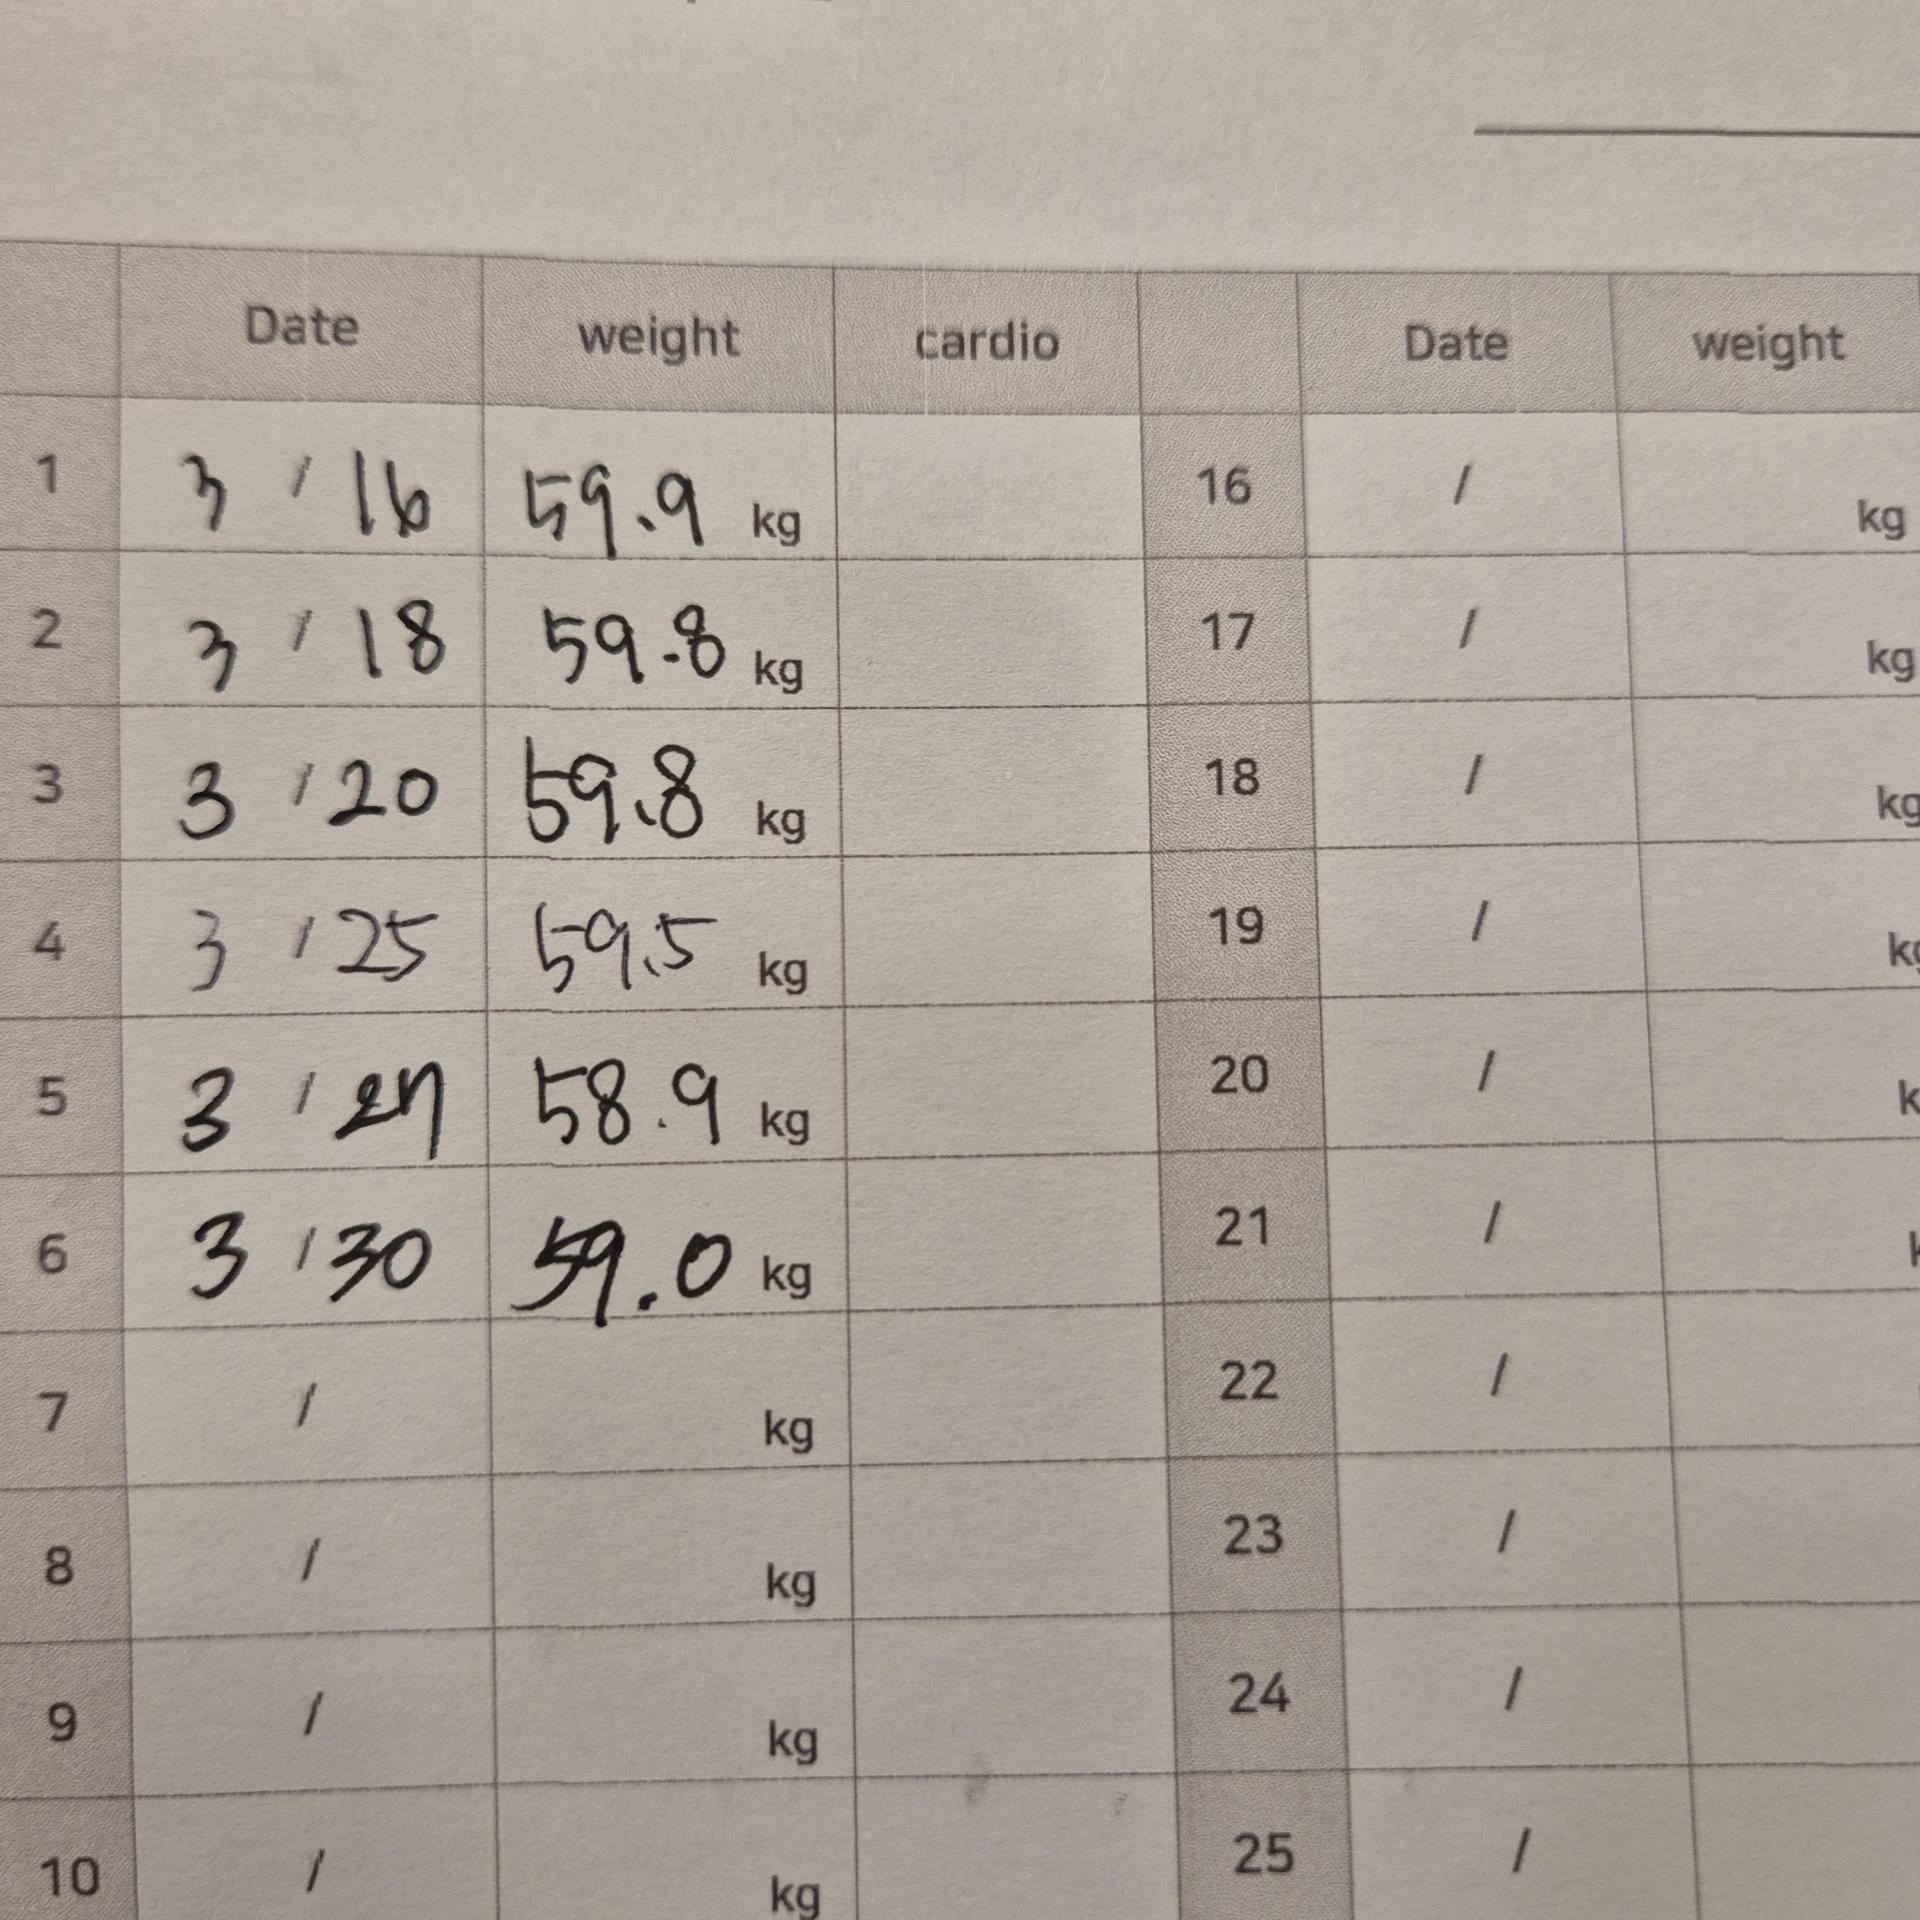 Date weight cardio Date weight
1 3 / 16 59.9 kg 16 / kg
2 3 / 18 59.8 kg 17 / kg
3 3 / 20 59.8 kg 18 / kg
4 3 / 25 59.5 kg 19 / kg
5 3 / 27 58.9 kg 20 / k
6 3 / 30 59.0 kg 21 /
7 / kg 22 /
8 / kg 23 /
9 / kg 24 /
10 / kg 25 /